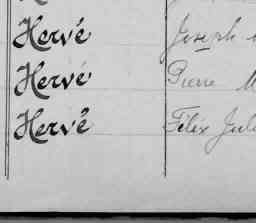 Hervé Joseph
Hervé Pierre M
Hervé Félix Jul